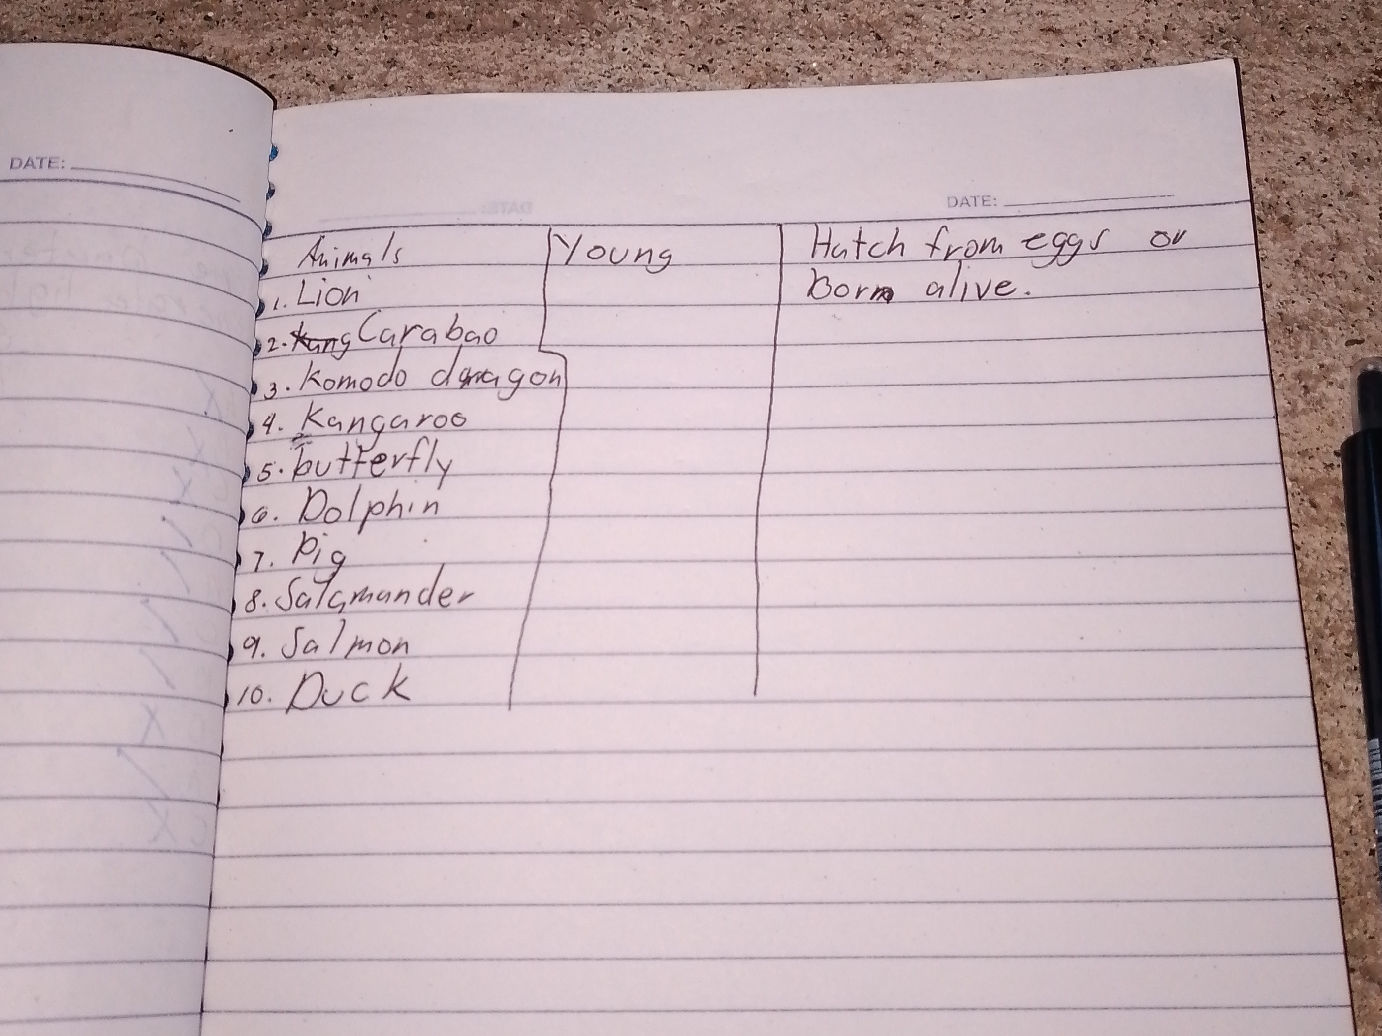 DATE:
DATE:
Animals Young Hatch from eggs or
born alive.
1. Lion
2. Kang Carabao
3. Komodo dragon
4. Kangaroo
5. butterfly
6. Dolphin
7. Pig
8. Salamander
9. Salmon
10. Duck